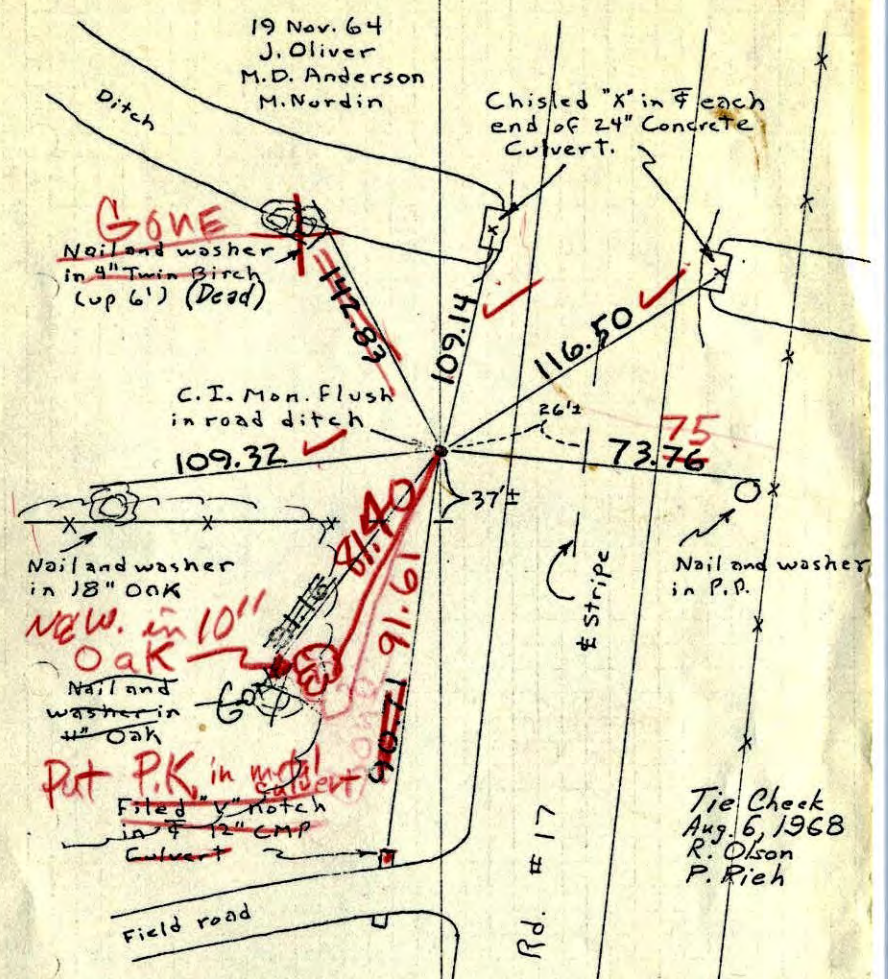 19 Nov. 64
J. Oliver
M.D. Anderson
M. Nordin
Ditch
Chisled "X" in ℄ each
end of 24" Concrete
Culvert.
GONE
Nail and washer
in 4" Twin Birch
(up 6') (Dead)
142.83
109.14
116.50
C.I. Mon. Flush
in road ditch
26'±
75
73.76
109.32
37'±
81.40
91.61
Nail and washer
in 18" Oak
Nail and washer
in P.P.
℄ Stripe
N&W. in 10"
Oak
Nail and
washer in
11" Oak
Gone
90.71
Put P.K. in metal
culvert
Filed "V" notch
in ℄ 12" CMP
Culvert
Tie Check
Aug. 6, 1968
R. Olson
P. Rieh
Rd. #17
Field road